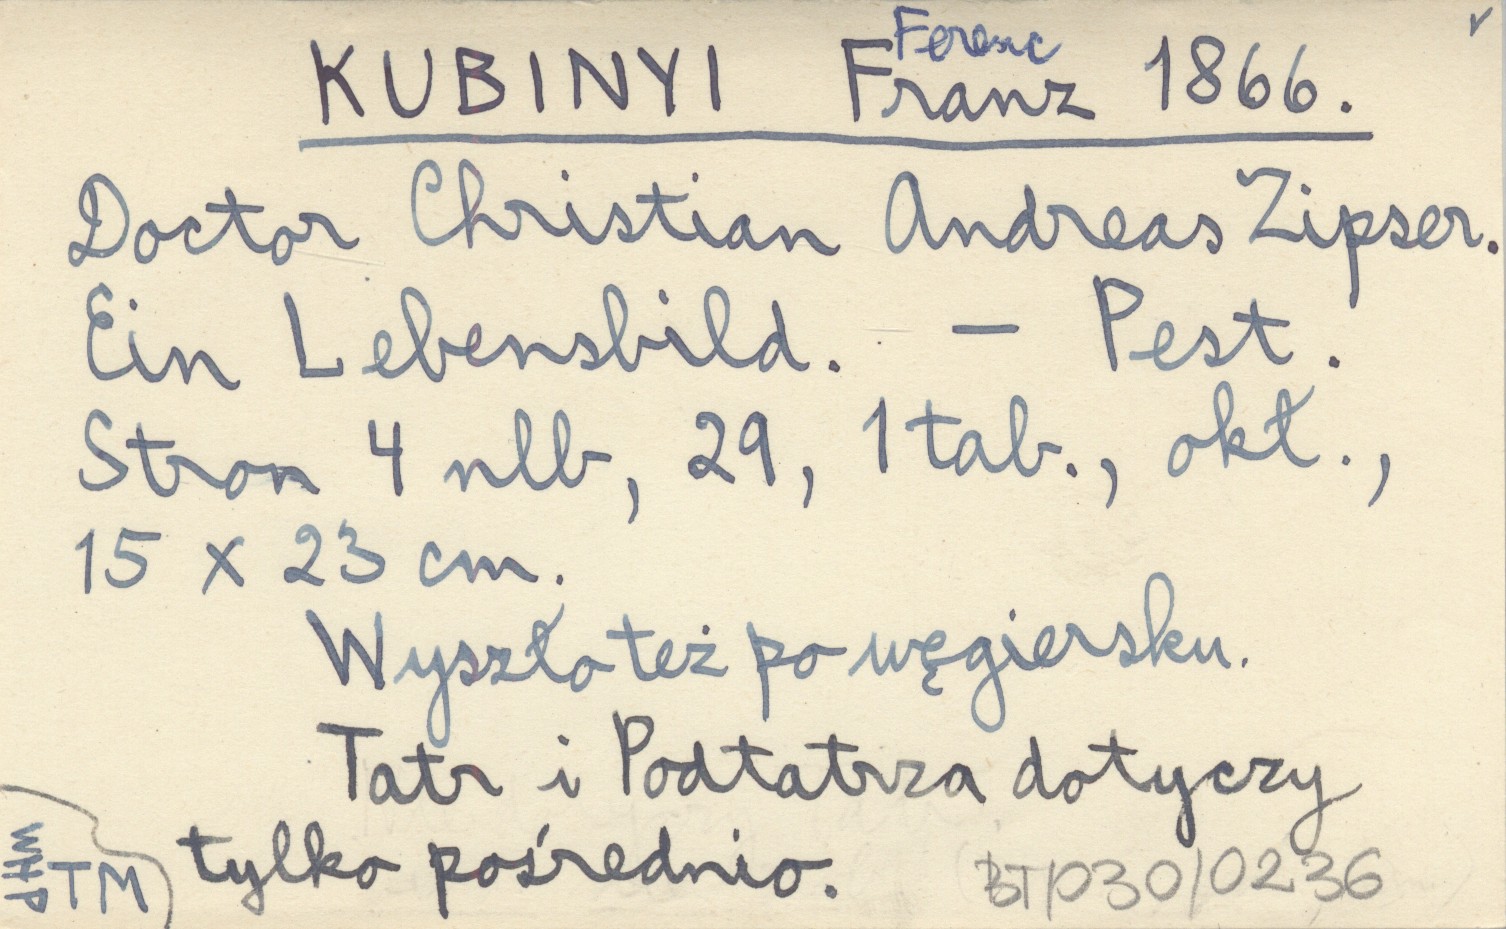 Ferenc
KUBINYI Franz 1866.
Doctor Christian Andreas Zipser.
Ein Lebensbild. — Pest.
Stron 4 nlb, 29, 1 tab., okł.,
15 x 23 cm.
Wyszło też po węgiersku.
Tatr i Podtatrza dotyczy
tylko pośrednio.
WHP
TM
BT/030/0236